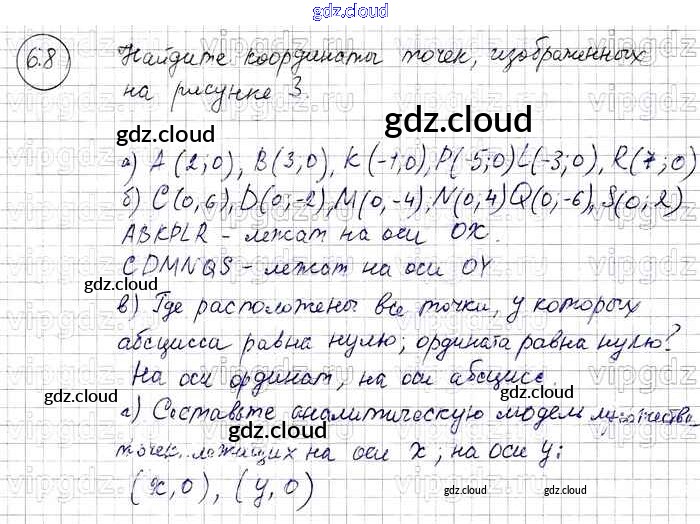 gdz.cloud
6.8 Найдите координаты точек, изображенных
на рисунке 3.
gdz.cloud gdz.cloud
а) A(2;0), B(3,0), K(-1;0), P(-5;0) L(-3;0), R(7;0)
б) C(0,6), D(0,-2), M(0,-4), N(0,4) Q(0,-6), S(0,2)
ABKPLR - лежат на оси OX.
CDMNQS - лежат на оси OY
gdz.cloud gdz.cloud
в) Где расположены все точки, у которых
абсцисса равна нулю; ордината равна нулю?
На оси ординат, на оси абсцисс.
gdz.cloud gdz.cloud
г) Составьте аналитическую модель множества
точек, лежащих на оси x; на оси y:
gdz.cloud gdz.cloud
(x,0), (y,0)
gdz.cloud gdz.cloud